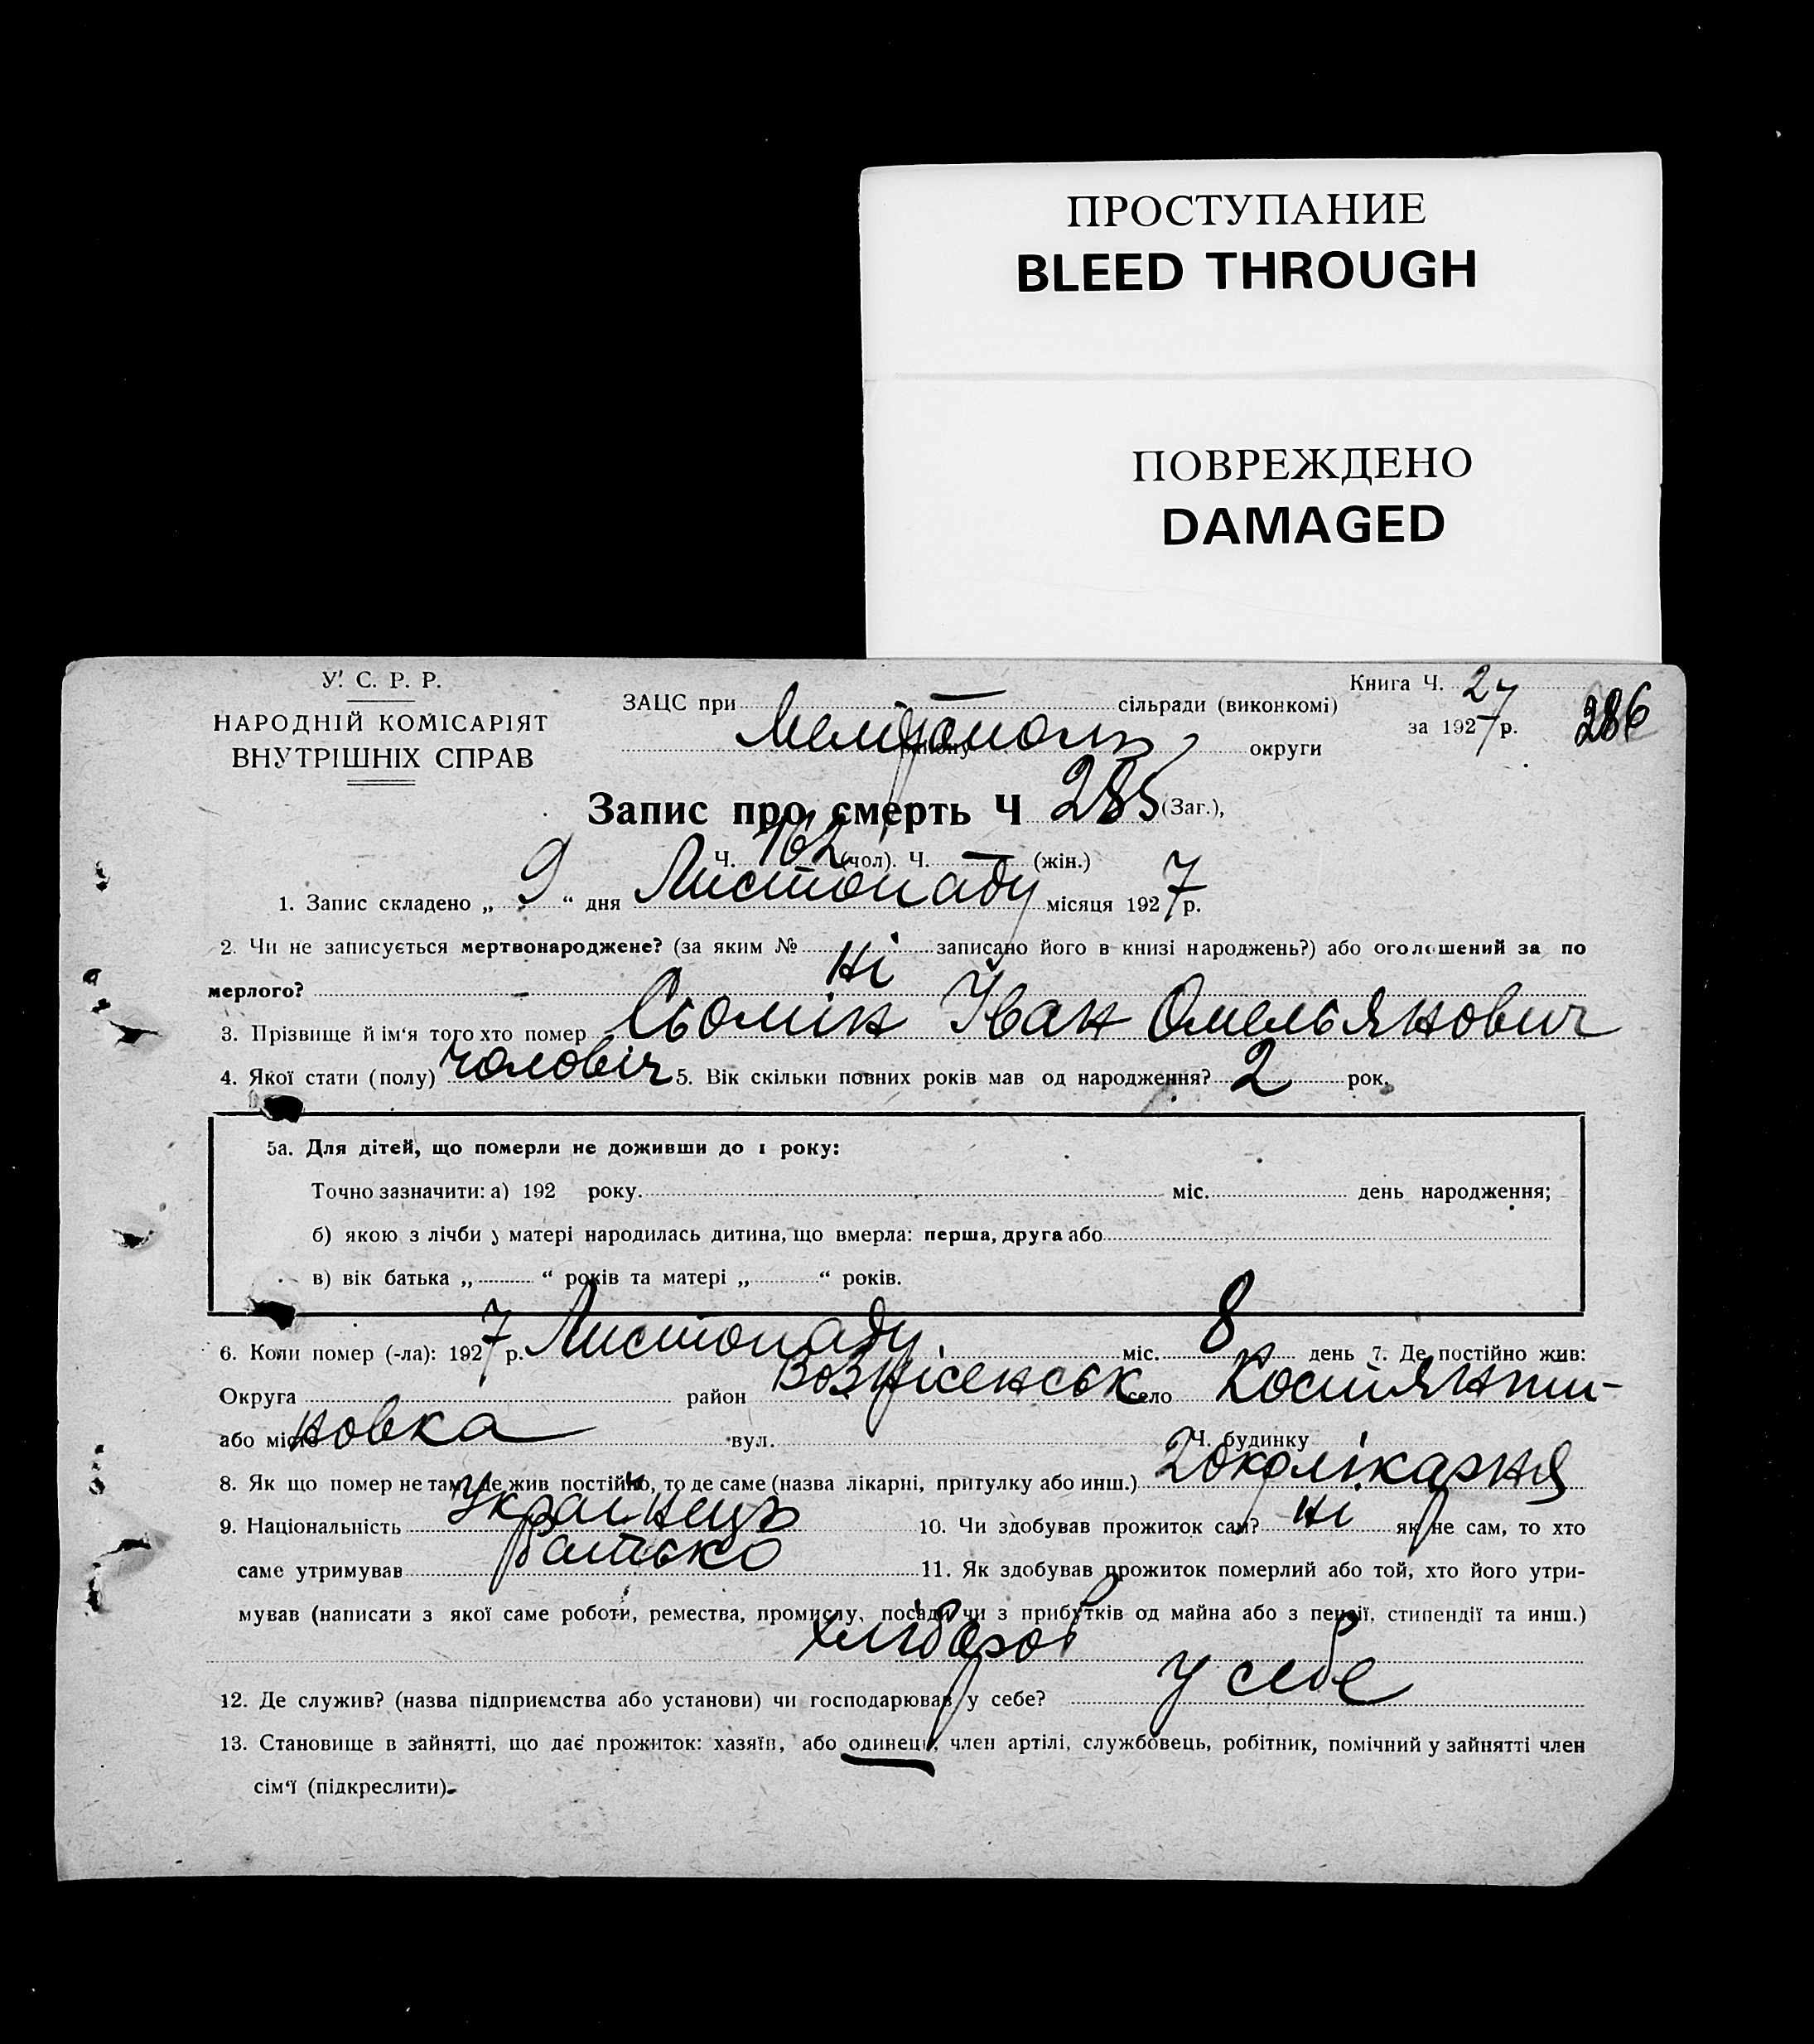 ПРОСТУПАНИЕ
BLEED THROUGH
ПОВРЕЖДЕНО
DAMAGED
У. С. Р. Р.
НАРОДНІЙ КОМІСАРІЯТ
ВНУТРІШНІХ СПРАВ
Книга Ч. 27
за 1927 р.
286
ЗАЦС при — сільради (виконкомі)
Мелітополь району округи
Запис про смерть Ч 285 (Заг.),
Ч. 162 (чол). Ч. — (жін.)
1. Запис складено „ 9 “ дня Листопаду місяця 1927 р.
2. Чи не записується мертвонароджене? (за яким № записано його в книзі народжень?) або оголошений за по
мерлого? ні
3. Прізвище й ім‘я того хто помер Сьомін Іван Омельянович
4. Якої стати (полу) чоловіч 5. Вік скільки повних років мав од народження? 2 рок.
5а. Для дітей, що померли не доживши до 1 року:
Точно зазначити: а) 192 року. міс. день народження;
б) якою з лічби у матері народилась дитина, що вмерла: перша, друга або
в) вік батька „ “ років та матері „ “ років.
6. Коли помер (-ла): 1927 р. Листопаду міс. 8 день 7. Де постійно жив:
Округа район Вознісенськ село Костянти-
або місто новка вул. Ч. будинку
8. Як що помер не там, де жив постійно, то де саме (назва лікарні, притулку або инш.) 2 окрлікарня
9. Національність Українець 10. Чи здобував прожиток сам? ні як не сам, то хто
саме утримував батько 11. Як здобував прожиток померлий або той, хто його утри-
мував (написати з якої саме роботи, ремества, промислу, посади чи з прибутків од майна або з пенсії, стипендії та инш.)
хлібороб
12. Де служив? (назва підприємства або установи) чи господарював у себе? у себе
13. Становище в зайнятті, що дає прожиток: хазяїн, або одинець, член артілі, службовець, робітник, помічний у зайнятті член
сім‘ї (підкреслити).